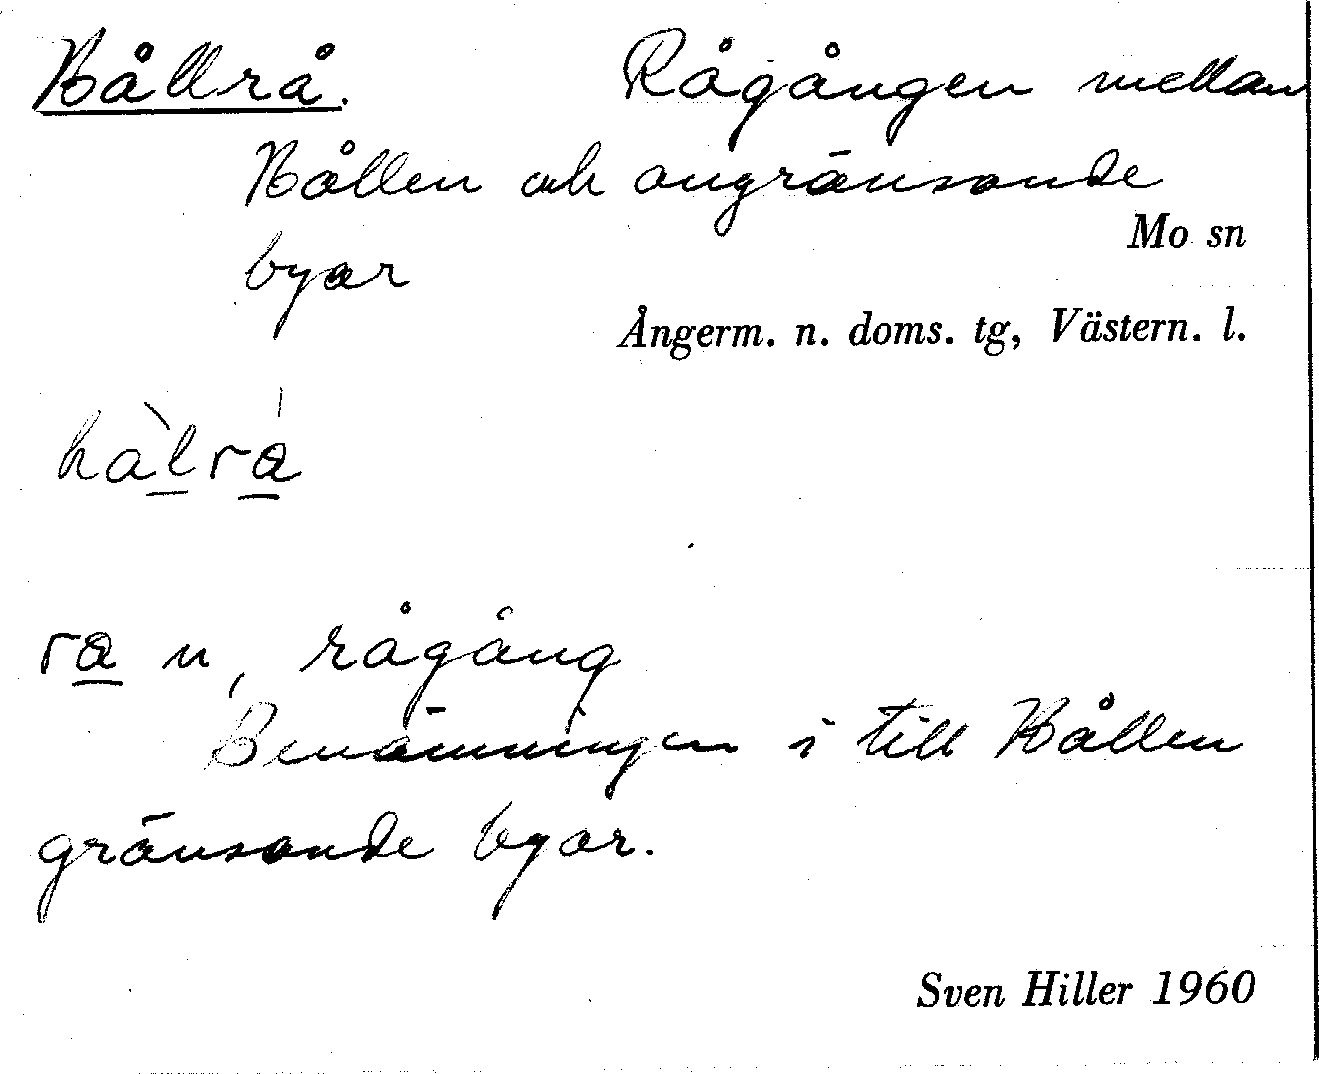 Hållrå. Rågången mellan
Hållen och angränsande
byar
Mo sn
Ångerm. n. doms. tg, Västern. l.
hàl̲rá̲
ra̲ n, rågång
Benämningen i till Hållen
gränsande byar.
Sven Hiller 1960